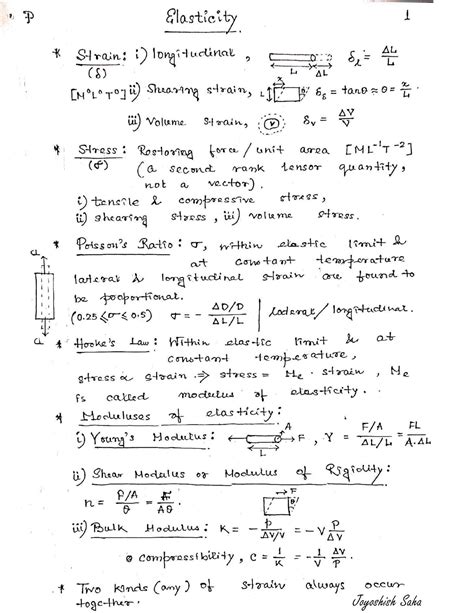 P Elasticity 1
* Strain: i) longitudinal, L ΔL δₗ = ΔL/L
(δ)
[M⁰L⁰T⁰] ii) Shearing strain, L x δₛ = tanθ ≈ θ = x/L.
iii) Volume strain, δᵥ = ΔV/V
* Stress: Restoring force/unit area [ML⁻¹T⁻²]
(σ) (a second rank tensor quantity,
not a vector).
i) tensile & compressive stress,
ii) shearing stress, iii) volume stress.
* Poisson's Ratio: σ, Within elastic limit &
at constant temperature
lateral & longitudinal strain are found to
be poportional.
(0.25 ≤ σ ≤ 0.5) σ = - ΔD/D / ΔL/L | lateral/longitudinal.
* Hooke's Law: Within elastic limit & at
constant temperature,
stress ∝ strain ⇒ stress = Mₑ · strain, Mₑ
is called modulus of elasticity.
* Moduluses of elasticity:
i) Young's Modulus: L A F, Y = F/A / ΔL/L = FL / A.ΔL
ii) Shear Modulus or Modulus of Rigidity:
n = F/A / θ = F / Aθ F
iii) Bulk Modulus: K = - P / ΔV/V = - V P/ΔV
compressibility, C = 1/K = - 1/V ΔV/P
* Two kinds (any) of strain always occur
together.
Joyoshish Saha